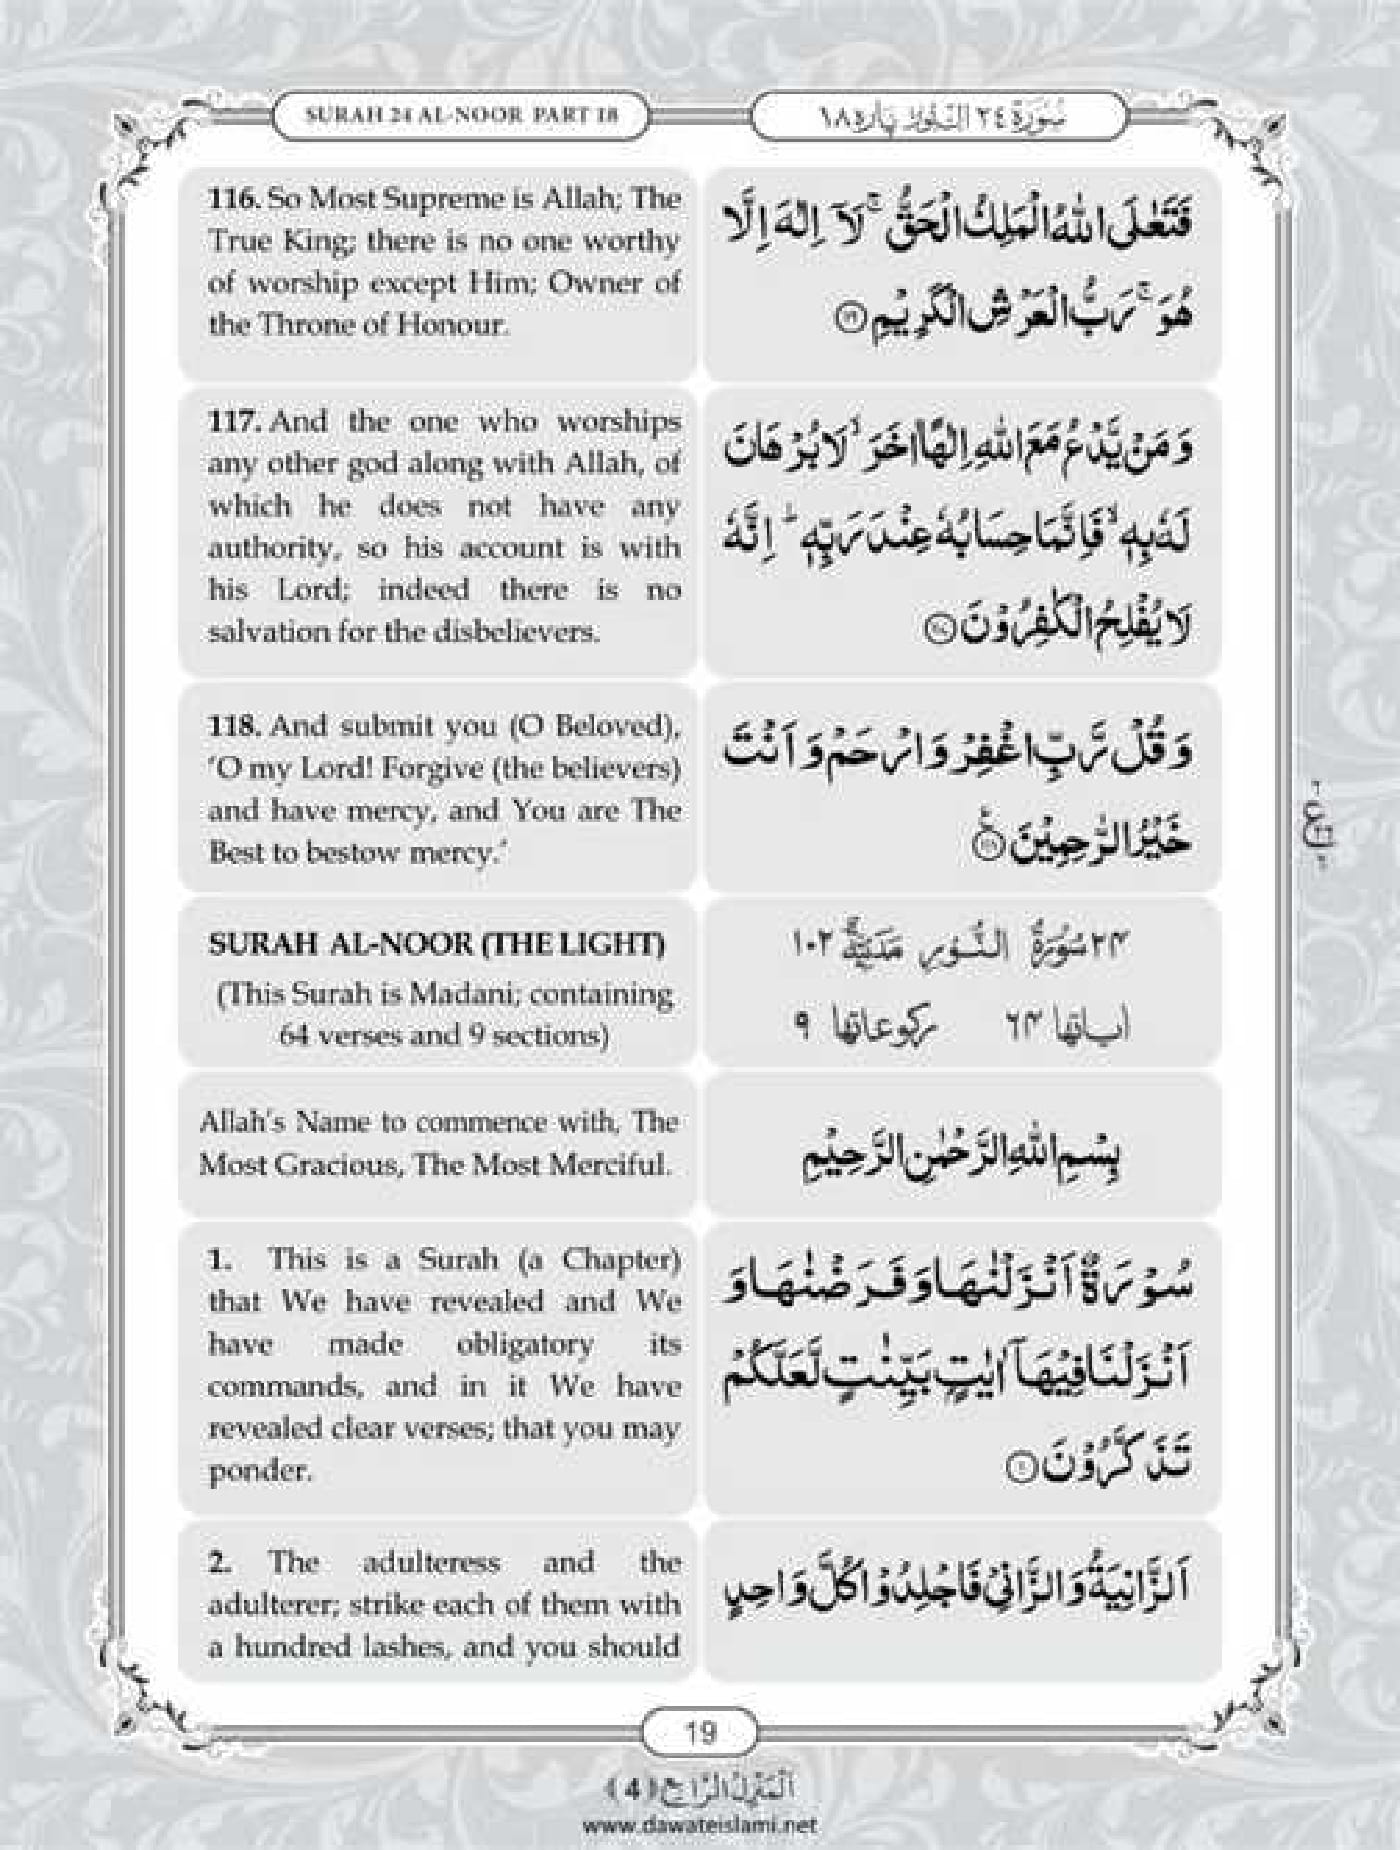 SURAH 24 AL-NOOR PART 18
سُوْرَة ٢٤ النُّوْر پاره ١٨
116. So Most Supreme is Allah; The
True King; there is no one worthy
of worship except Him; Owner of
the Throne of Honour.
فَتَعٰلَى اللّٰهُ الْمَلِكُ الْحَقُّ ۚ لَاۤ اِلٰهَ اِلَّا
هُوَ ۚ رَبُّ الْعَرْشِ الْكَرِيْمِ
117. And the one who worships
any other god along with Allah, of
which he does not have any
authority, so his account is with
his Lord; indeed there is no
salvation for the disbelievers.
وَ مَنْ يَّدْعُ مَعَ اللّٰهِ اِلٰهًا اٰخَرَ ۙ لَا بُرْهَانَ
لَهٗ بِهٖ ۙ فَاِنَّمَا حِسَابُهٗ عِنْدَ رَبِّهٖ ؕ اِنَّهٗ
لَا يُفْلِحُ الْكٰفِرُوْنَ
118. And submit you (O Beloved),
‘O my Lord! Forgive (the believers)
and have mercy, and You are The
Best to bestow mercy.’
وَ قُلْ رَّبِّ اغْفِرْ وَ ارْحَمْ وَ اَنْتَ
خَيْرُ الرّٰحِمِيْنَ
SURAH AL-NOOR (THE LIGHT)
(This Surah is Madani; containing
64 verses and 9 sections)
٢٤ سُوْرَةُ النُّوْرِ مَدَنِيَّةٌ ١٠٢
اياتها ٦٤ ركوعاتها ٩
Allah’s Name to commence with, The
Most Gracious, The Most Merciful.
بِسْمِ اللّٰهِ الرَّحْمٰنِ الرَّحِيْمِ
1. This is a Surah (a Chapter)
that We have revealed and We
have made obligatory its
commands, and in it We have
revealed clear verses; that you may
ponder.
سُوْرَةٌ اَنْزَلْنٰهَا وَ فَرَضْنٰهَا وَ
اَنْزَلْنَا فِيْهَاۤ اٰيٰتٍۭ بَيِّنٰتٍ لَّعَلَّكُمْ
تَذَكَّرُوْنَ ١
2. The adulteress and the
adulterer; strike each of them with
a hundred lashes, and you should
اَلزَّانِيَةُ وَ الزَّانِيْ فَاجْلِدُوْا كُلَّ وَاحِدٍ
19
اَلْمَنْزِلُ الرَّابِع (4)
www.dawateislami.net